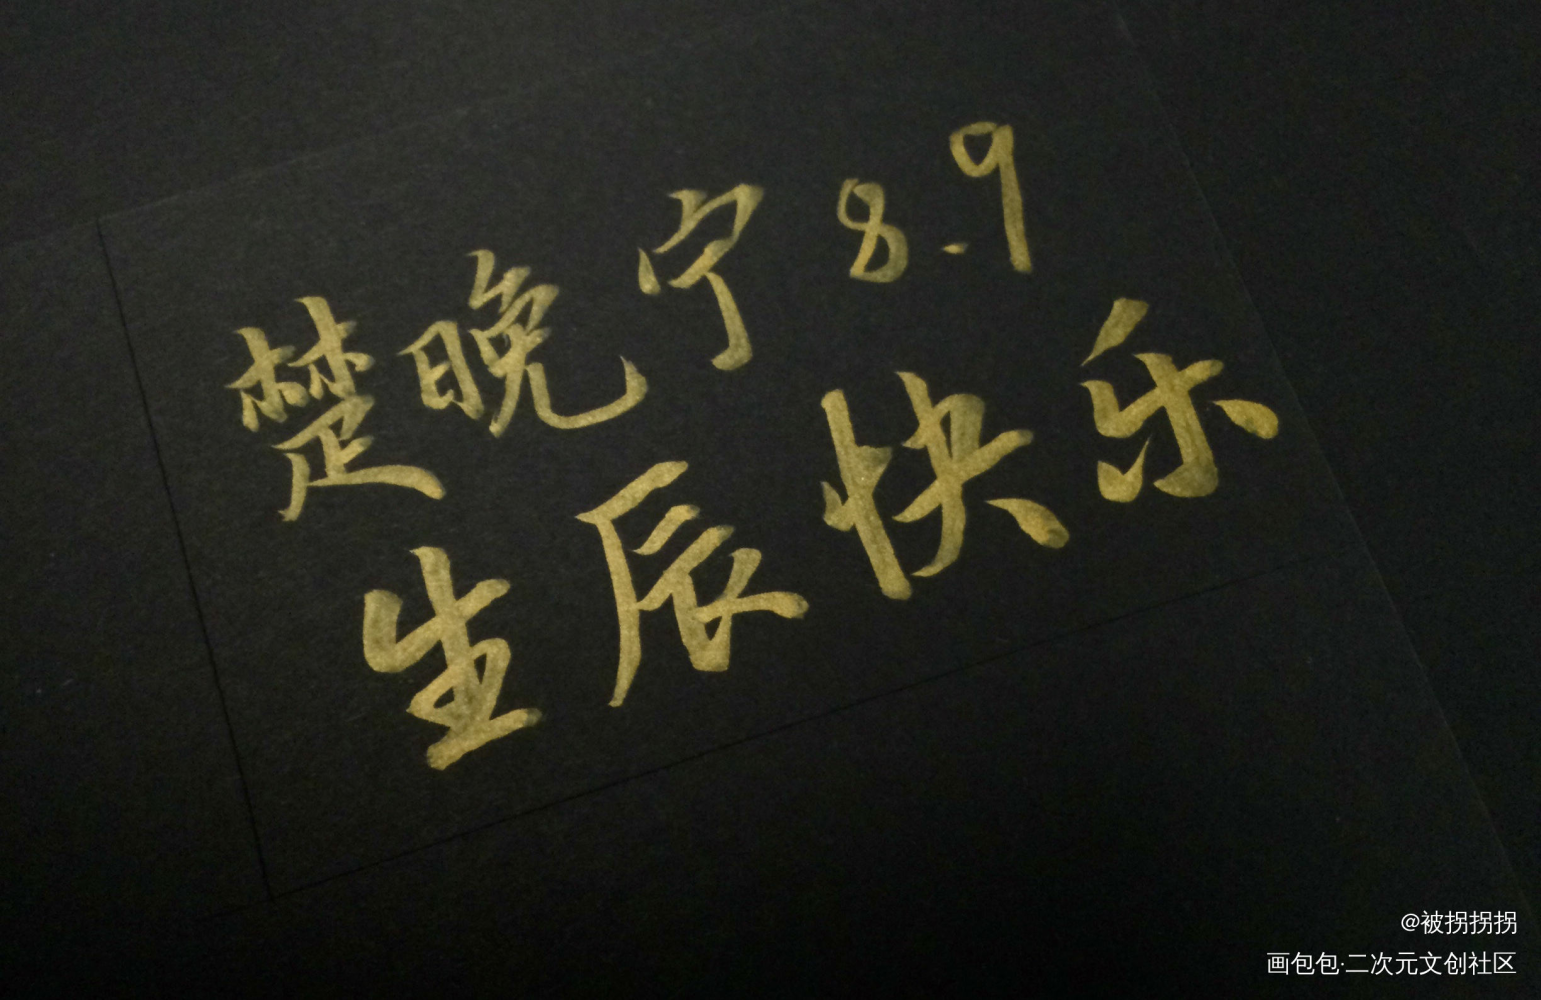 楚晚宁 8.9
生辰快乐
@被拐拐拐
画包包·二次元文创社区